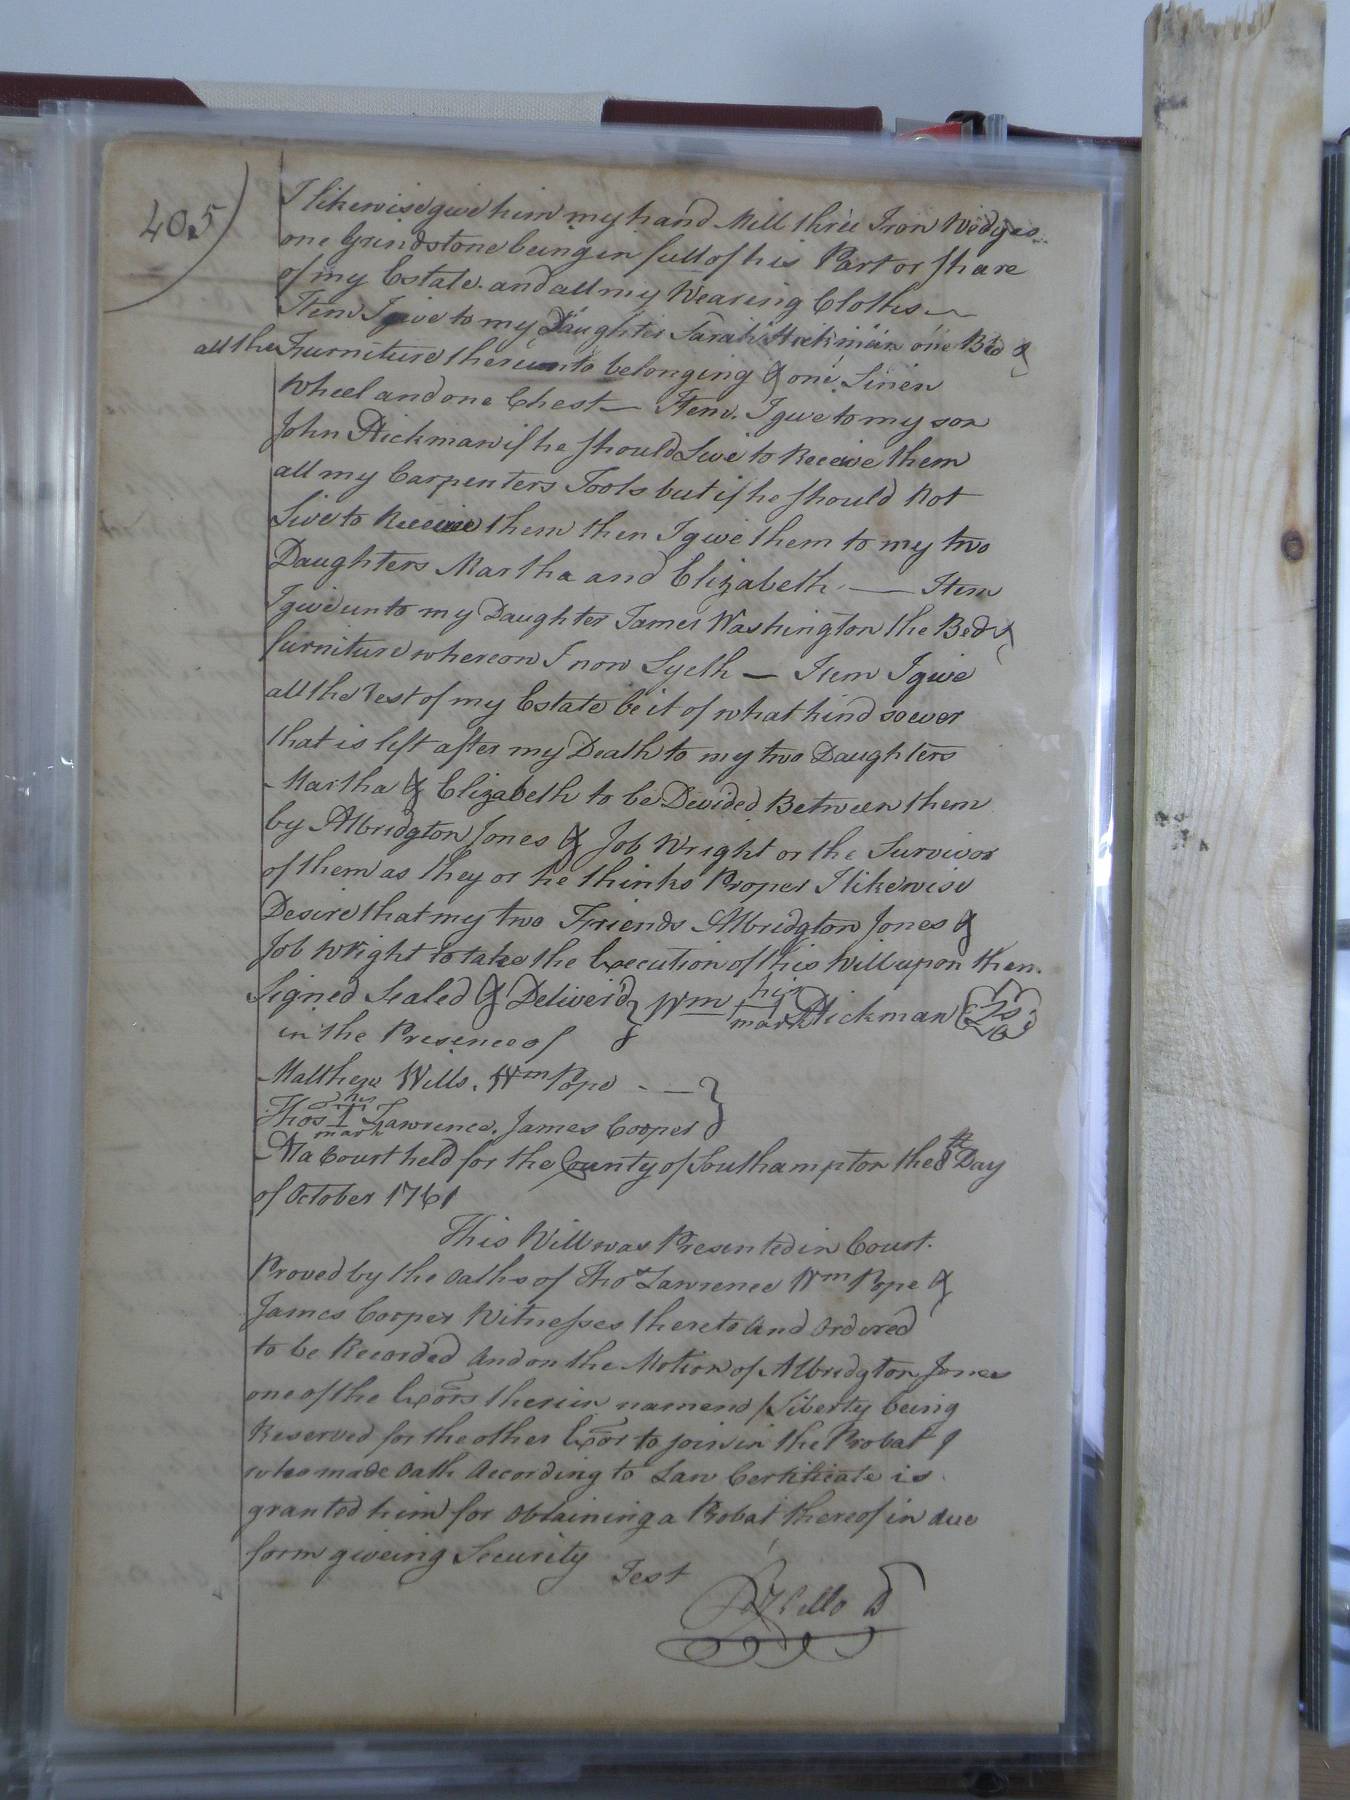 405)
I likewise give him my hand Mill three Iron Wedges
one Grindstone being in full of his Part or share
of my Estate. and all my Wearing Cloths —
Item I give to my Daughter Sarah Hickman one Bed &
all the Furniture thereunto belonging & one Linen
Wheel and one Chest — Item. I give to my son
John Hickman if he should Live to Receive them
all my Carpenters Tools but if he should Not
Live to Receive them then I give them to my two
Daughters Martha and Elizabeth — Item
I give unto my Daughter James Washington the Bed &
furniture whereon I now Lyeth — Item I give
all the Rest of my Estate be it of what kind soever
that is left after my Death to my two Daughters
Martha & Elizabeth to be Devided Between them
by Albridgton Jones & Job Wright or the Survivor
of them as they or he thinks Proper I likewise
Desire that my two Friends Albridgton Jones &
Job Wright to take the Execution of this Will upon them.
Signed Sealed & Deliver'd } Wm his mark Hickman (Ls)
in the Presence of
Matthew Wills. Wm Pope - — }
Thos his T mark Lawrence. James Cooper
At a Court held for the County of Southampton the 8th Day
of October 1761
This Will was Presented in Court.
Proved by the Oaths of Thos Lawrence Wm Pope &
James Cooper Witnesses thereto And Ordered
to be Recorded And on the Motion of Albridgton Jones
one of the Exors therein named / Liberty being
Reserved for the other Exor to join in the Probat /
who made Oath According to Law Certificate is
granted him for Obtaining a Probat thereof in due
form giveing Security
Test